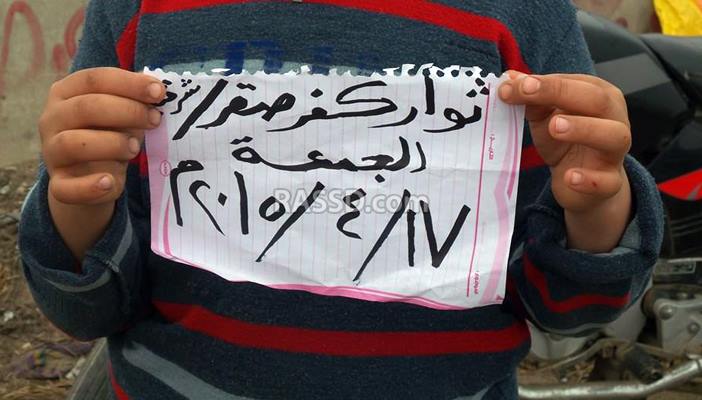 ثوار كفر صقر/شرقية
الجمعة
٢٠١٥/٤/١٧م
RASSD.com